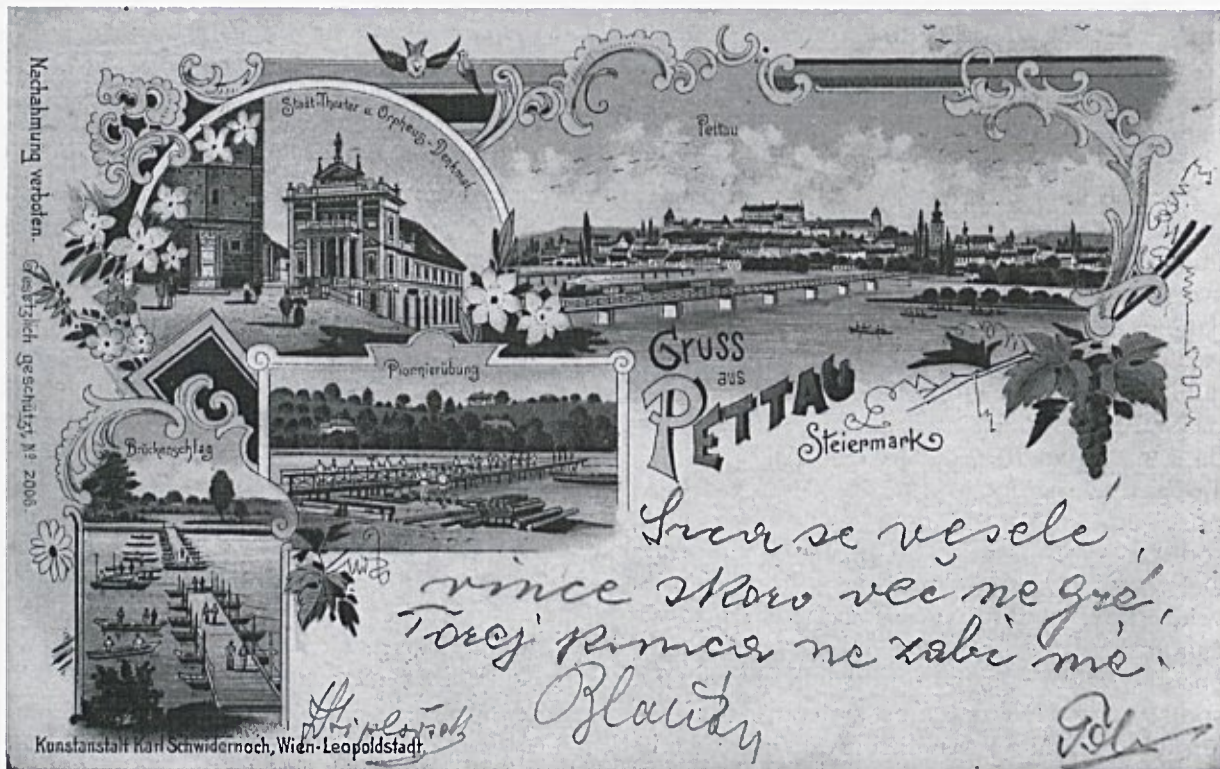 Nachahmung verboten. Gesetzlich geschützt, Nº 2006
Stadt-Theater u. Orpheus-Denkmal
Pettau
Pionnierübung
Brückenschlag
Gruss
aus
PETTAU
Steiermark
Srca se vesele,
vince skoro več ne gré,
Torej konca ne zabi mé.
Kunstanstalt Karl Schwidernoch, Wien-Leopoldstadt.